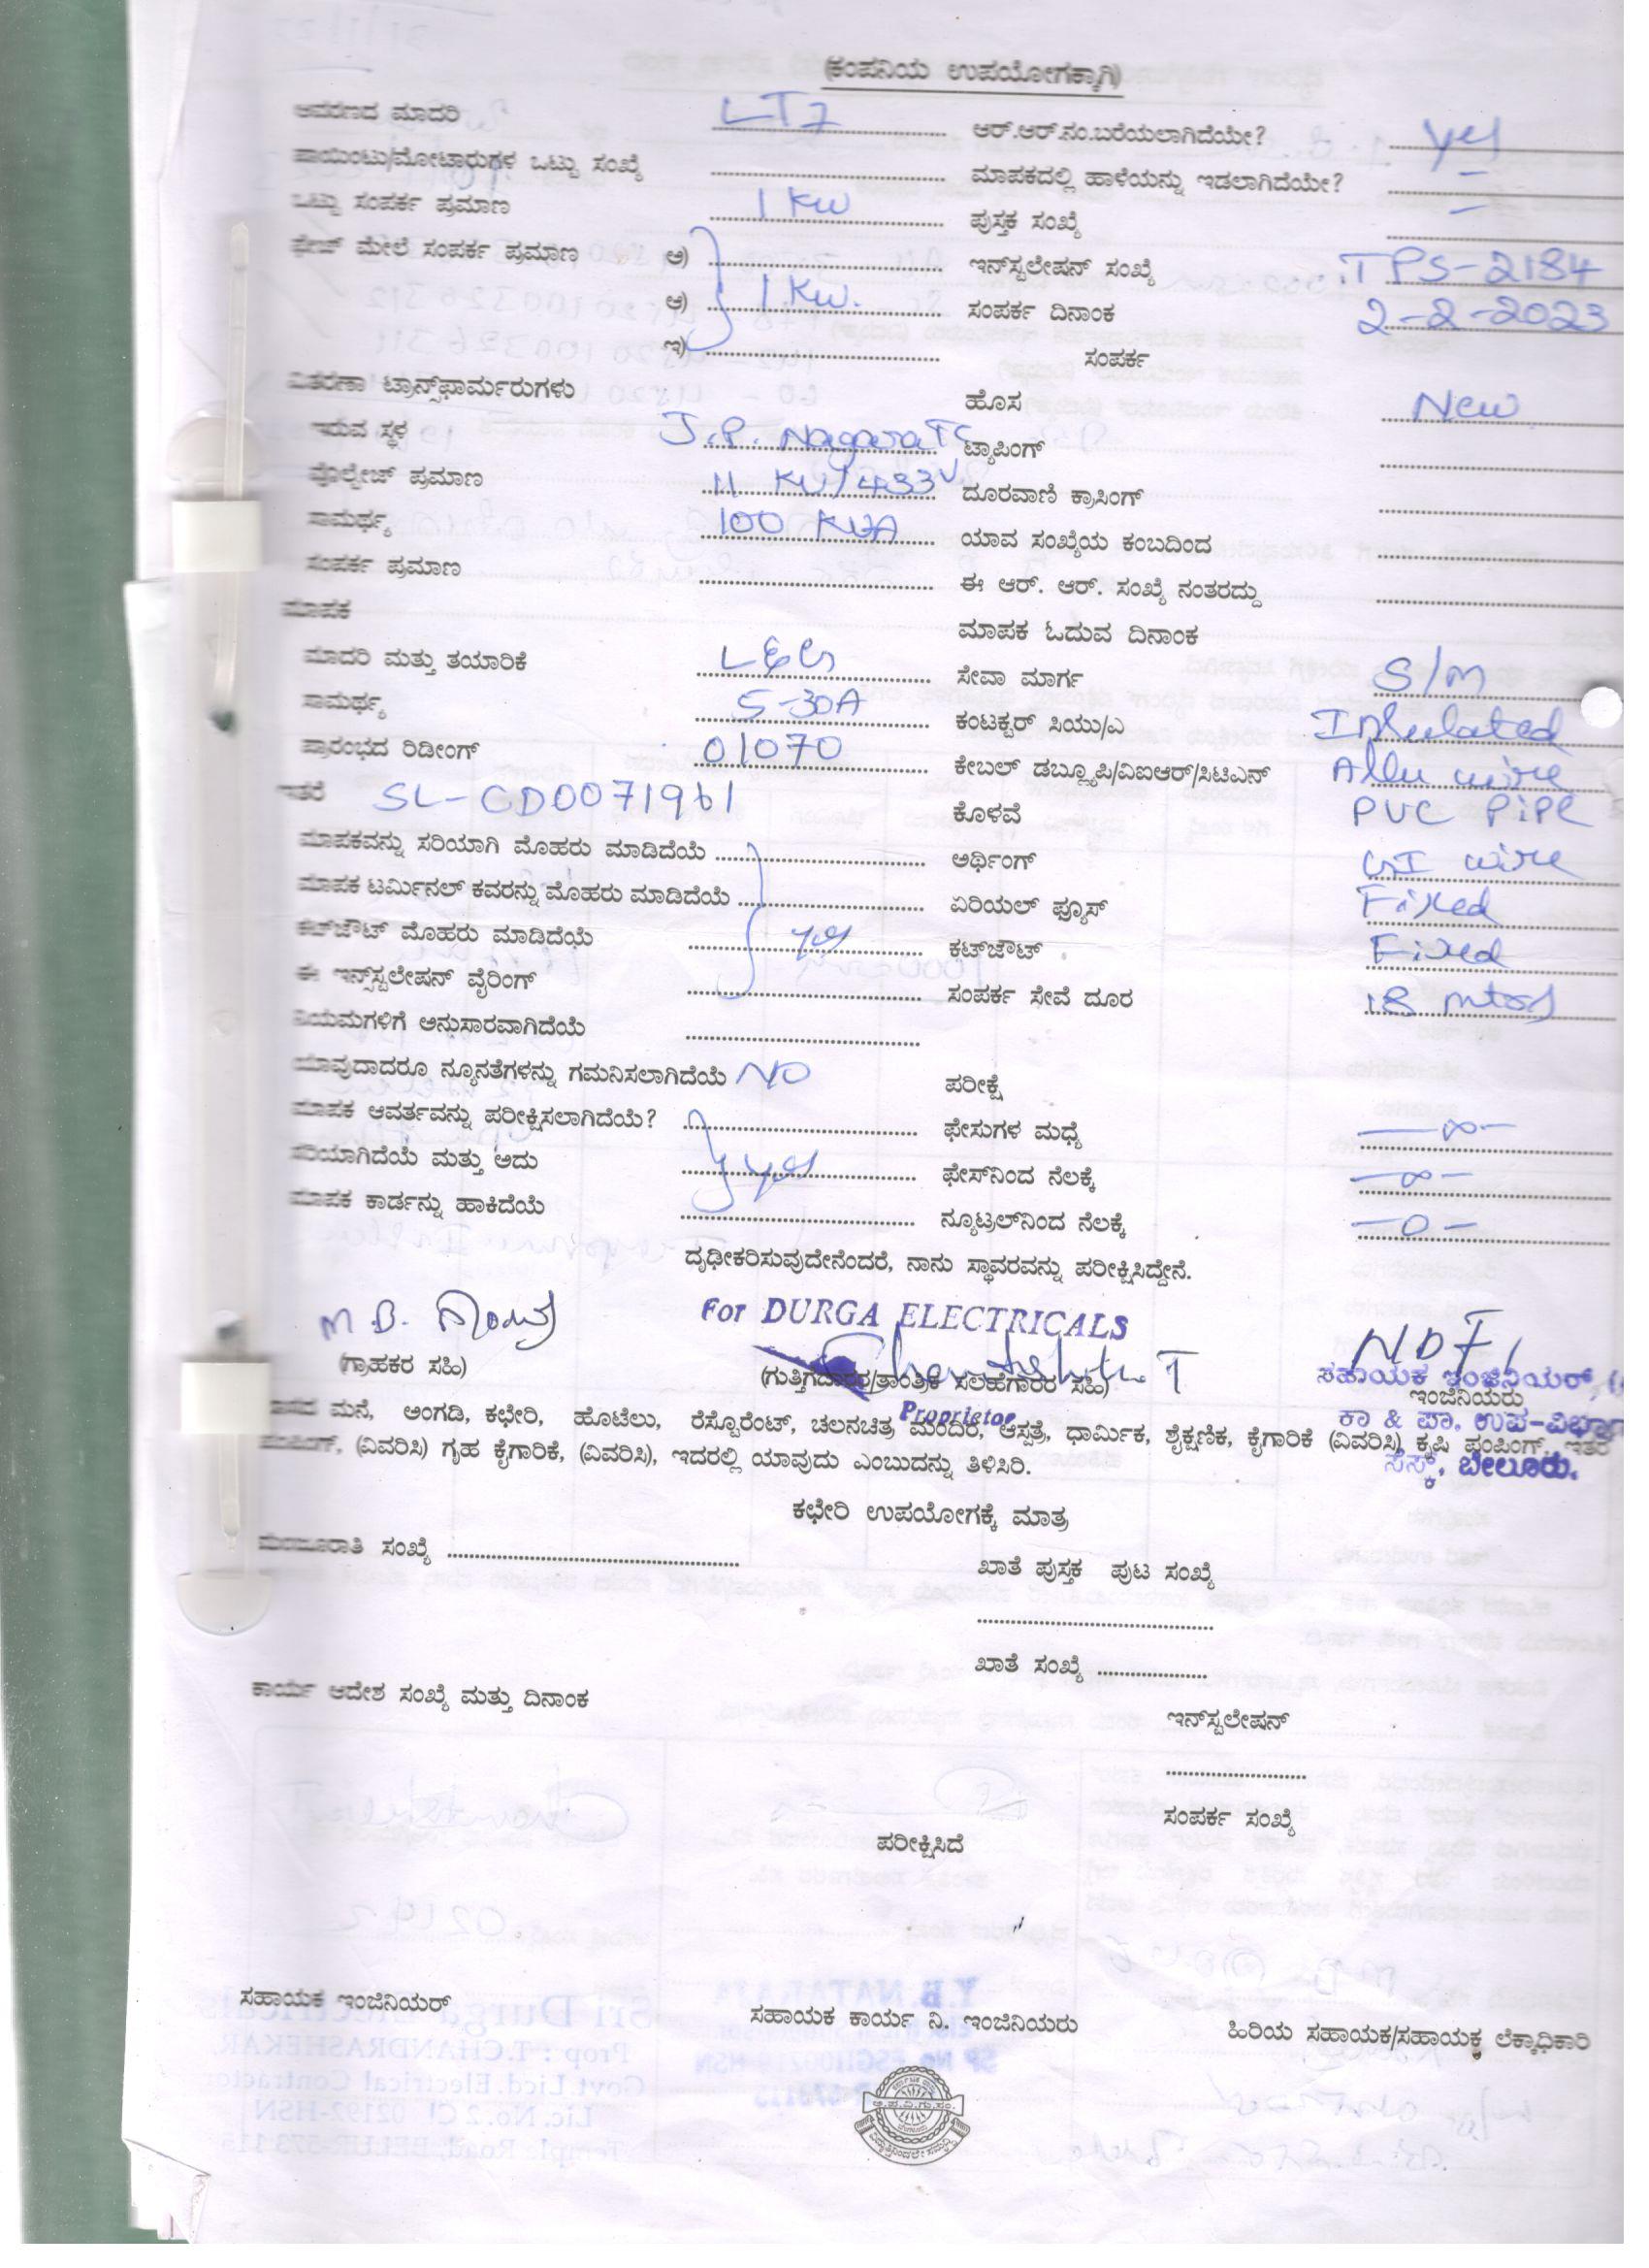 (ಕಂಪನಿಯ ಉಪಯೋಗಕ್ಕಾಗಿ)
ಆವರಣದ ಮಾದರಿ LT7 ಆರ್.ಆರ್.ನಂ.ಬರೆಯಲಾಗಿದೆಯೇ? yes
ಪಾಯಿಂಟು/ಮೋಟಾರುಗಳ ಒಟ್ಟು ಸಂಖ್ಯೆ ಮಾಪಕದಲ್ಲಿ ಹಾಳೆಯನ್ನು ಇಡಲಾಗಿದೆಯೇ? –
ಒಟ್ಟು ಸಂಪರ್ಕ ಪ್ರಮಾಣ 1 KW ಪುಸ್ತಕ ಸಂಖ್ಯೆ –
ಫೇಜ್ ಮೇಲೆ ಸಂಪರ್ಕ ಪ್ರಮಾಣ ಅ) ಇನ್‌ಸ್ಟಲೇಷನ್ ಸಂಖ್ಯೆ TPS-2184
ಆ) 1 KW. ಸಂಪರ್ಕ ದಿನಾಂಕ 2-2-2023
ಇ) ಸಂಪರ್ಕ
ವಿತರಣಾ ಟ್ರಾನ್ಸ್‌ಫಾರ್ಮರುಗಳು ಹೊಸ New
ಇರುವ ಸ್ಥಳ J.P. Nagara TC ಟ್ಯಾಪಿಂಗ್
ವೊಲ್ಟೇಜ್ ಪ್ರಮಾಣ 11 KV/433V ದೂರವಾಣಿ ಕ್ರಾಸಿಂಗ್
ಸಾಮರ್ಥ್ಯ 100 KVA ಯಾವ ಸಂಖ್ಯೆಯ ಕಂಬದಿಂದ
ಸಂಪರ್ಕ ಪ್ರಮಾಣ ಈ ಆರ್. ಆರ್. ಸಂಖ್ಯೆ ನಂತರದ್ದು
ಮಾಪಕ ಮಾಪಕ ಓದುವ ದಿನಾಂಕ
ಮಾದರಿ ಮತ್ತು ತಯಾರಿಕೆ L&G ಸೇವಾ ಮಾರ್ಗ S/M
ಸಾಮರ್ಥ್ಯ 5-30A ಕಂಟಕ್ಟರ್ ಸಿಯು/ಎ Inhulated
ಪ್ರಾರಂಭದ ರಿಡೀಂಗ್ 01070 ಕೇಬಲ್ ಡಬ್ಲ್ಯೂಪಿ/ವಿಐಆರ್/ಸಿಟಿಎನ್ Allu wire
ಇತರೆ SL-CD0071961 ಕೊಳವೆ PVC PiPe
ಮಾಪಕವನ್ನು ಸರಿಯಾಗಿ ಮೊಹರು ಮಾಡಿದೆಯೆ ಅರ್ಥಿಂಗ್ GI wire
ಮಾಪಕ ಟರ್ಮಿನಲ್ ಕವರನ್ನು ಮೊಹರು ಮಾಡಿದೆಯೆ ಏರಿಯಲ್ ಫ್ಯೂಸ್ Fixed
ಕಟ್‌ಜೌಟ್ ಮೊಹರು ಮಾಡಿದೆಯೆ yes ಕಟ್‌ಜೌಟ್ Fixed
ಈ ಇನ್ಸ್‌ಸ್ಟಲೇಷನ್ ವೈರಿಂಗ್ ಸಂಪರ್ಕ ಸೇವೆ ದೂರ 18 mtrs
ನಿಯಮಗಳಿಗೆ ಅನುಸಾರವಾಗಿದೆಯೆ
ಯಾವುದಾದರೂ ನ್ಯೂನತೆಗಳನ್ನು ಗಮನಿಸಲಾಗಿದೆಯೆ NO ಪರೀಕ್ಷೆ
ಮಾಪಕ ಆವರ್ತವನ್ನು ಪರೀಕ್ಷಿಸಲಾಗಿದೆಯೆ? ಫೇಸುಗಳ ಮಧ್ಯೆ –∞–
ಸರಿಯಾಗಿದೆಯೆ ಮತ್ತು ಅದು yes ಫೇಸ್‌ನಿಂದ ನೆಲಕ್ಕೆ –∞–
ಮಾಪಕ ಕಾರ್ಡನ್ನು ಹಾಕಿದೆಯೆ ನ್ಯೂಟ್ರಲ್‌ನಿಂದ ನೆಲಕ್ಕೆ –0–
ದೃಢೀಕರಿಸುವುದೇನೆಂದರೆ, ನಾನು ಸ್ಥಾವರವನ್ನು ಪರೀಕ್ಷಿಸಿದ್ದೇನೆ.
M.B. For DURGA ELECTRICALS
(ಗ್ರಾಹಕರ ಸಹಿ) (ಗುತ್ತಿಗೆದಾರರ/ತಾಂತ್ರಿಕ ಸಲಹೆಗಾರರ ಸಹಿ) ಸಹಾಯಕ ಇಂಜಿನಿಯರ್,
ಇಂಜಿನಿಯರು
Proprietor ಕಾ & ಪಾ. ಉಪ-ವಿಭಾಗ
ಮನೆ, ಅಂಗಡಿ, ಕಛೇರಿ, ಹೊಟೆಲು, ರೆಸ್ಟೊರೆಂಟ್, ಚಲನಚಿತ್ರ ಮಂದಿರ, ಆಸ್ಪತ್ರೆ, ಧಾರ್ಮಿಕ, ಶೈಕ್ಷಣಿಕ, ಕೈಗಾರಿಕೆ (ವಿವರಿಸಿ) ಕೃಷಿ ಪಂಪಿಂಗ್, ಇತರೆ
ಪಂಪಿಂಗ್, (ವಿವರಿಸಿ) ಗೃಹ ಕೈಗಾರಿಕೆ, (ವಿವರಿಸಿ), ಇದರಲ್ಲಿ ಯಾವುದು ಎಂಬುದನ್ನು ತಿಳಿಸಿರಿ.
ಸೆಸ್ಕ್, ಬೇಲೂರು.
ಕಛೇರಿ ಉಪಯೋಗಕ್ಕೆ ಮಾತ್ರ
ಮಂಜೂರಾತಿ ಸಂಖ್ಯೆ
ಖಾತೆ ಪುಸ್ತಕ ಪುಟ ಸಂಖ್ಯೆ
ಖಾತೆ ಸಂಖ್ಯೆ
ಕಾರ್ಯ ಆದೇಶ ಸಂಖ್ಯೆ ಮತ್ತು ದಿನಾಂಕ
ಇನ್‌ಸ್ಟಲೇಷನ್
ಸಂಪರ್ಕ ಸಂಖ್ಯೆ
ಪರೀಕ್ಷಿಸಿದೆ
ಸಹಾಯಕ ಇಂಜಿನಿಯರ್ ಸಹಾಯಕ ಕಾರ್ಯ ನಿ. ಇಂಜಿನಿಯರು ಹಿರಿಯ ಸಹಾಯಕ/ಸಹಾಯಕ ಲೆಕ್ಕಾಧಿಕಾರಿ